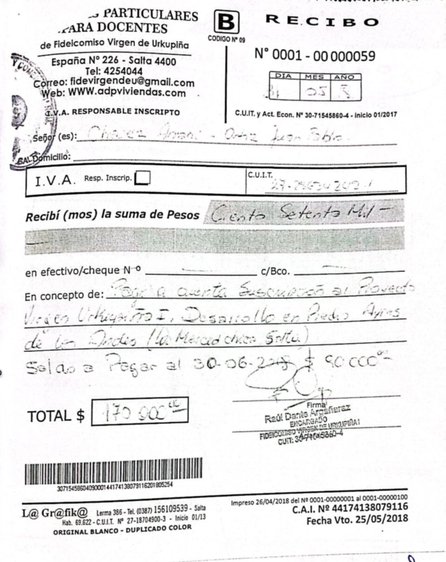 PARTICULARES
PARA DOCENTES
de Fidelcomiso Virgen de Urkupiña
España N° 226 - Salta 4400
Tel: 4254044
Correo: fidevirgendeu@gmail.com
Web: WWW.adpvviendas.com
I.V.A. RESPONSABLE INSCRIPTO
B
CODIGO Nº 09
RECIBO
N° 0001 - 00 000059
DIA MES AÑO
05
C.U.I.T. y Act. Econ. N° 30-71545860-4 - inicio 01/2017
Señor (es): Juan Pablo
Domicilio:
I.V.A. Resp. Inscrip.
C.U.I.T.
Recibí (mos) la suma de Pesos Ciento Setenta Mil -
en efectivo/cheque N º c/Bco.
En concepto de: Pago a cuenta Suscripción al Proyecto
Virgen Urkupiña I, Desarrollo en Piedra
de los Andes (La Merced chica Salta)
Saldo a Pagar al 30-06-2018 $ 90.000
TOTAL $ 170 000
Firma
Raúl Dante
ENCARGADO
FIDEICOMISO VIRGEN DE URKUPIÑA I
CUIT: 30-71545860-4
3071545860409000144174138079116201805254
L@ Gr@fik@
Lerma 386 - Tel. (0387) 156109539 - Salta
Hab. 69.622 - C.U.I.T. N° 27-18704900-3 - Inicio 01/13
ORIGINAL BLANCO - DUPLICADO COLOR
Impreso 26/04/2018 del Nº 0001-00000001 al 0001-00000100
C.A.I. Nº 44174138079116
Fecha Vto. 25/05/2018